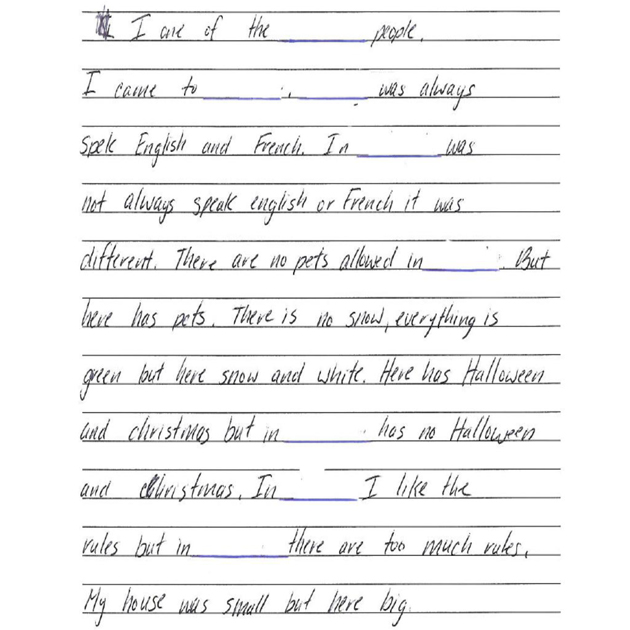 I are of the ______ people.
I came to ______. ______ was always
spek English and French. In ______ was
not always speak english or French it was
different. There are no pets allowed in ______. But
here has pets. There is no snow, everything is
green but here snow and white. Here has Halloween
and christmas but in ______ has no Halloween
and Christmas. In ______ I like the
rules but in ______ there are too much rules.
My house was small but here big.